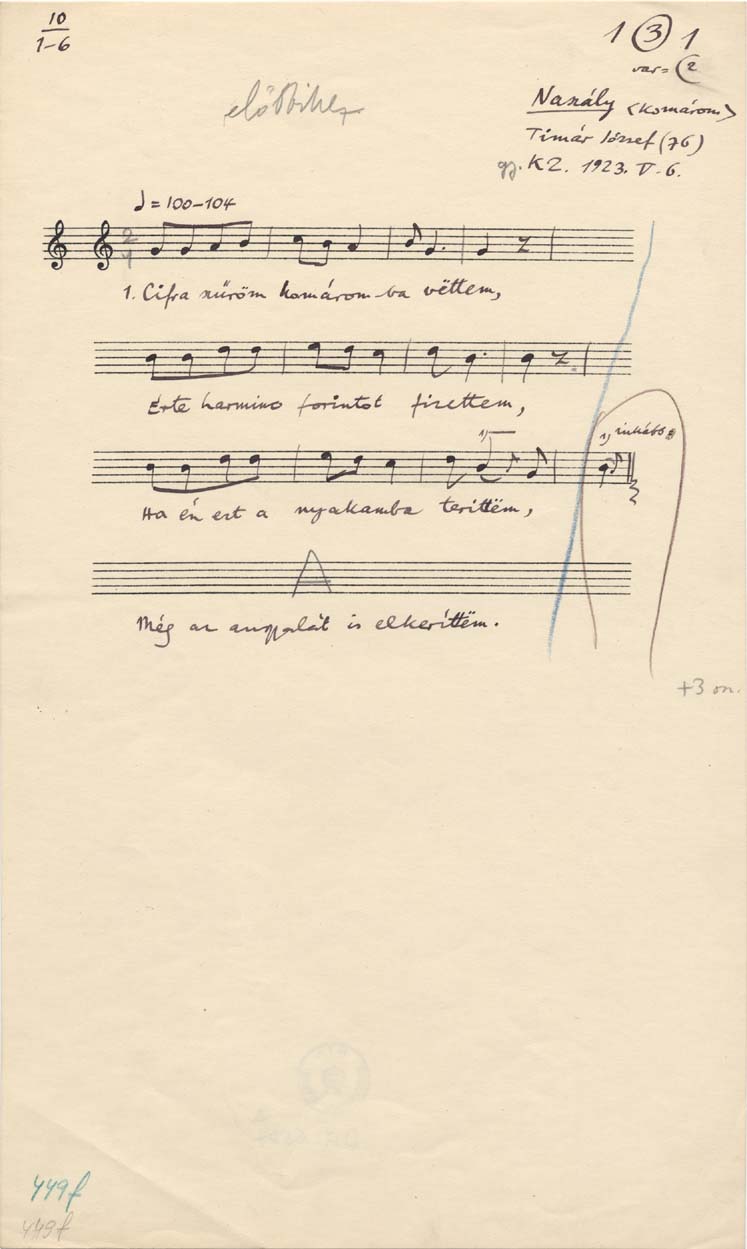 10
1-6
1 3 1
var= 2
előbbihez
Naszály (Komárom)
Timár József (76)
gy. KZ. 1923. V. 6.
♩ = 100-104
2
4
1. Cifra szűröm komárom-ba vëttem,
Érte harminc forintot fizettem,
1)
1) inkább
Ha én ezt a nyakamba teríttëm,
A
Még az angyalát is elkeríttëm.
+3 on.
449f
449f